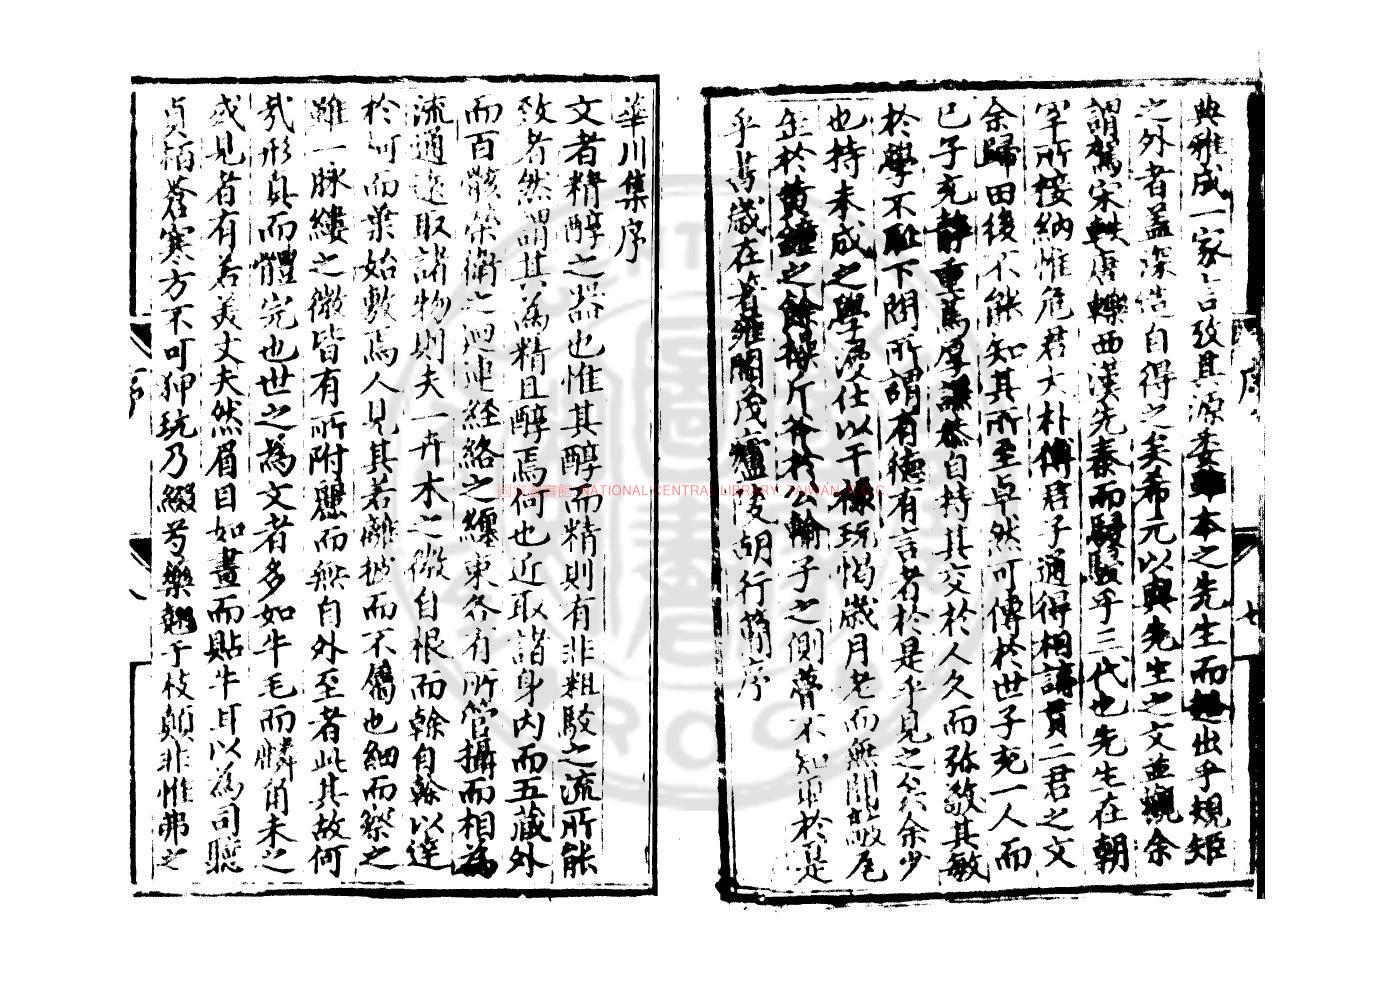 典雅成一家言攷其源委雖本之先生而超出乎規矩
之外者蓋深造自得之矣希元以與先生之文並觀余
謂駕宋軼唐轢西漢先秦而駸駸乎三代也先生在朝
罕所接納惟危君大朴傅君子通得相講貫二君之文
余歸田後不能知其所至卓然可傳於世子充一人而
已子充靜重篤厚謙恭自持其交於人久而弥敬其敏
於學不耻下問所謂有德有言者於是乎見之矣余少
也持未成之學漫仕以干祿玩愒歲月老而無聞
缶於黄鐘之餘操斤斧於公輸子之側蕾不知
於是
乎書歲在著雍閹茂廬陵胡行簡序
華川集序
文者精醇之器也惟其醇而精則有非粗駁之流所能
致者然謂其為精且醇焉何也近取諸身内而五藏外
而百骸榮衛之迴連経絡之纒束各有所管攝而相為
流通逺取諸物則夫一卉木之微自根而榦自榦以逹
於柯而葉始敷焉人見其若離披而不屬也細而察之
雖一脉縷之微皆有所附麗而無自外至者此其故何
㢤形真而體完也世之為文者多如牛毛而麟角未之
或見者有若美丈夫然眉目如畫而貼牛耳以為司聽
貞栢蒼寒方不可狎玩乃綴芍藥翹于枝顛非惟弗之
序